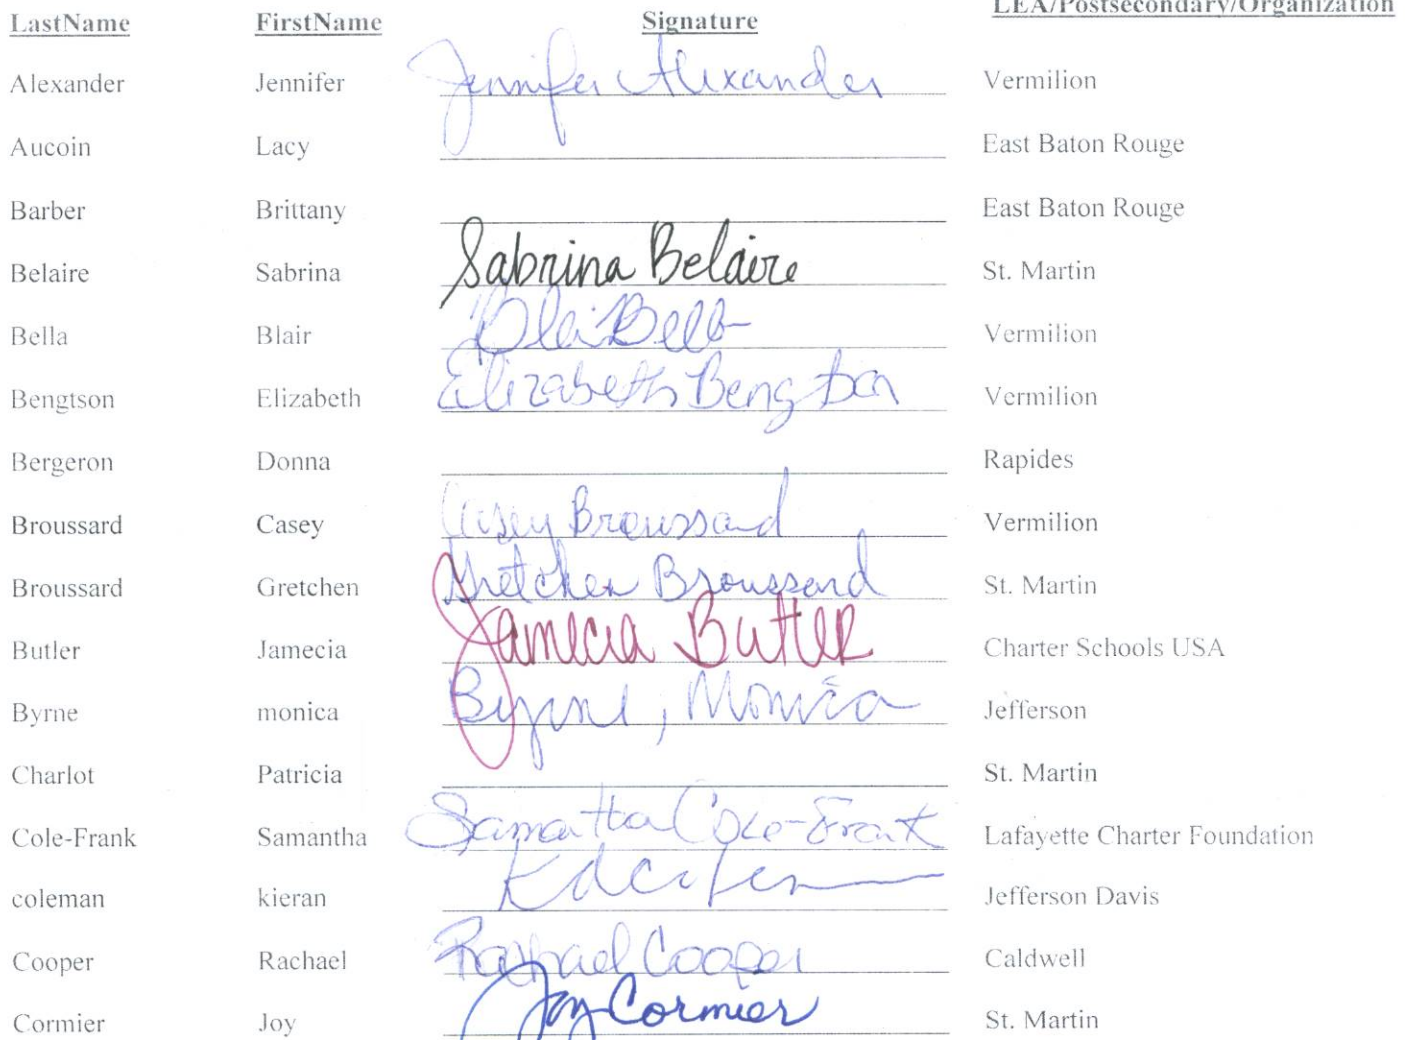 LastName FirstName Signature LEA/Postsecondary/Organization
Alexander Jennifer Jennifer Alexander Vermilion
Aucoin Lacy East Baton Rouge
Barber Brittany East Baton Rouge
Belaire Sabrina Sabrina Belaire St. Martin
Bella Blair Vermilion
Bengtson Elizabeth Elizabeth Bengtson Vermilion
Bergeron Donna Rapides
Broussard Casey Casey Broussard Vermilion
Broussard Gretchen Gretchen Broussard St. Martin
Butler Jamecia Jamecia Butler Charter Schools USA
Byrne monica Byrne, Monica Jefferson
Charlot Patricia St. Martin
Cole-Frank Samantha Samantha Cole-Frank Lafayette Charter Foundation
coleman kieran Jefferson Davis
Cooper Rachael Rachael Cooper Caldwell
Cormier Joy Joy Cormier St. Martin